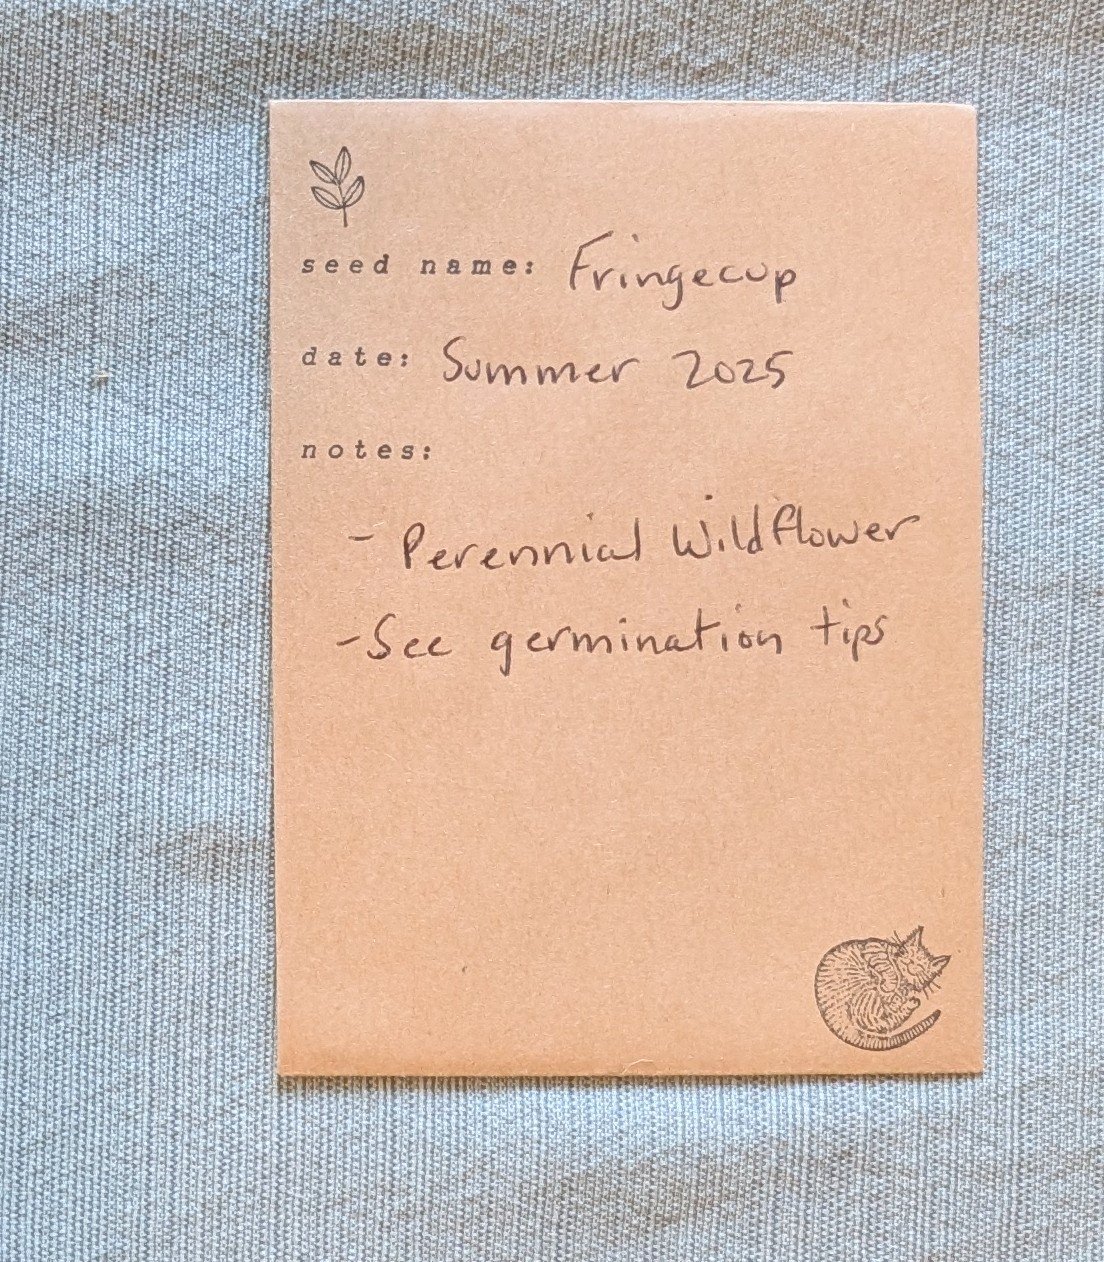 seed name: Fringecup
date: Summer 2025
notes:
- Perennial Wildflower
- See germination tips